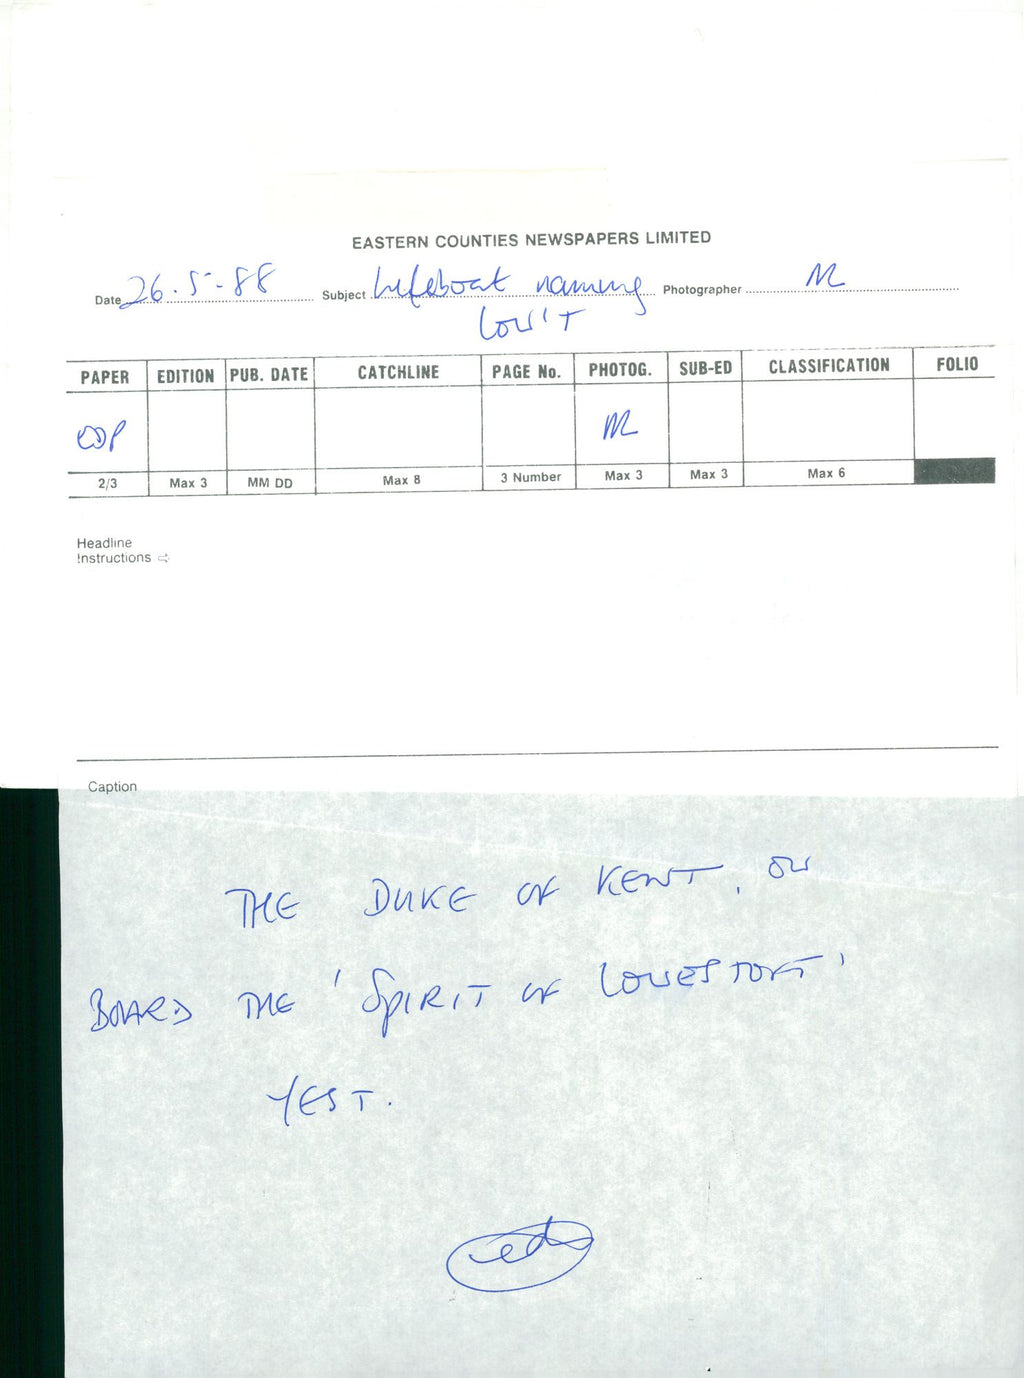 EASTERN COUNTIES NEWSPAPERS LIMITED
Date 26.5-88 Subject Lifeboat naming Photographer M
Low'T
PAPER EDITION PUB. DATE CATCHLINE PAGE No. PHOTOG. SUB-ED CLASSIFICATION FOLIO
EDP M
2/3 Max 3 MM DD Max 8 3 Number Max 3 Max 3 Max 6
Headline
Instructions ⇨
Caption
THE DUKE OF KENT, ON
BOARD THE 'SPIRIT OF LOWESTOFT'
YEST.